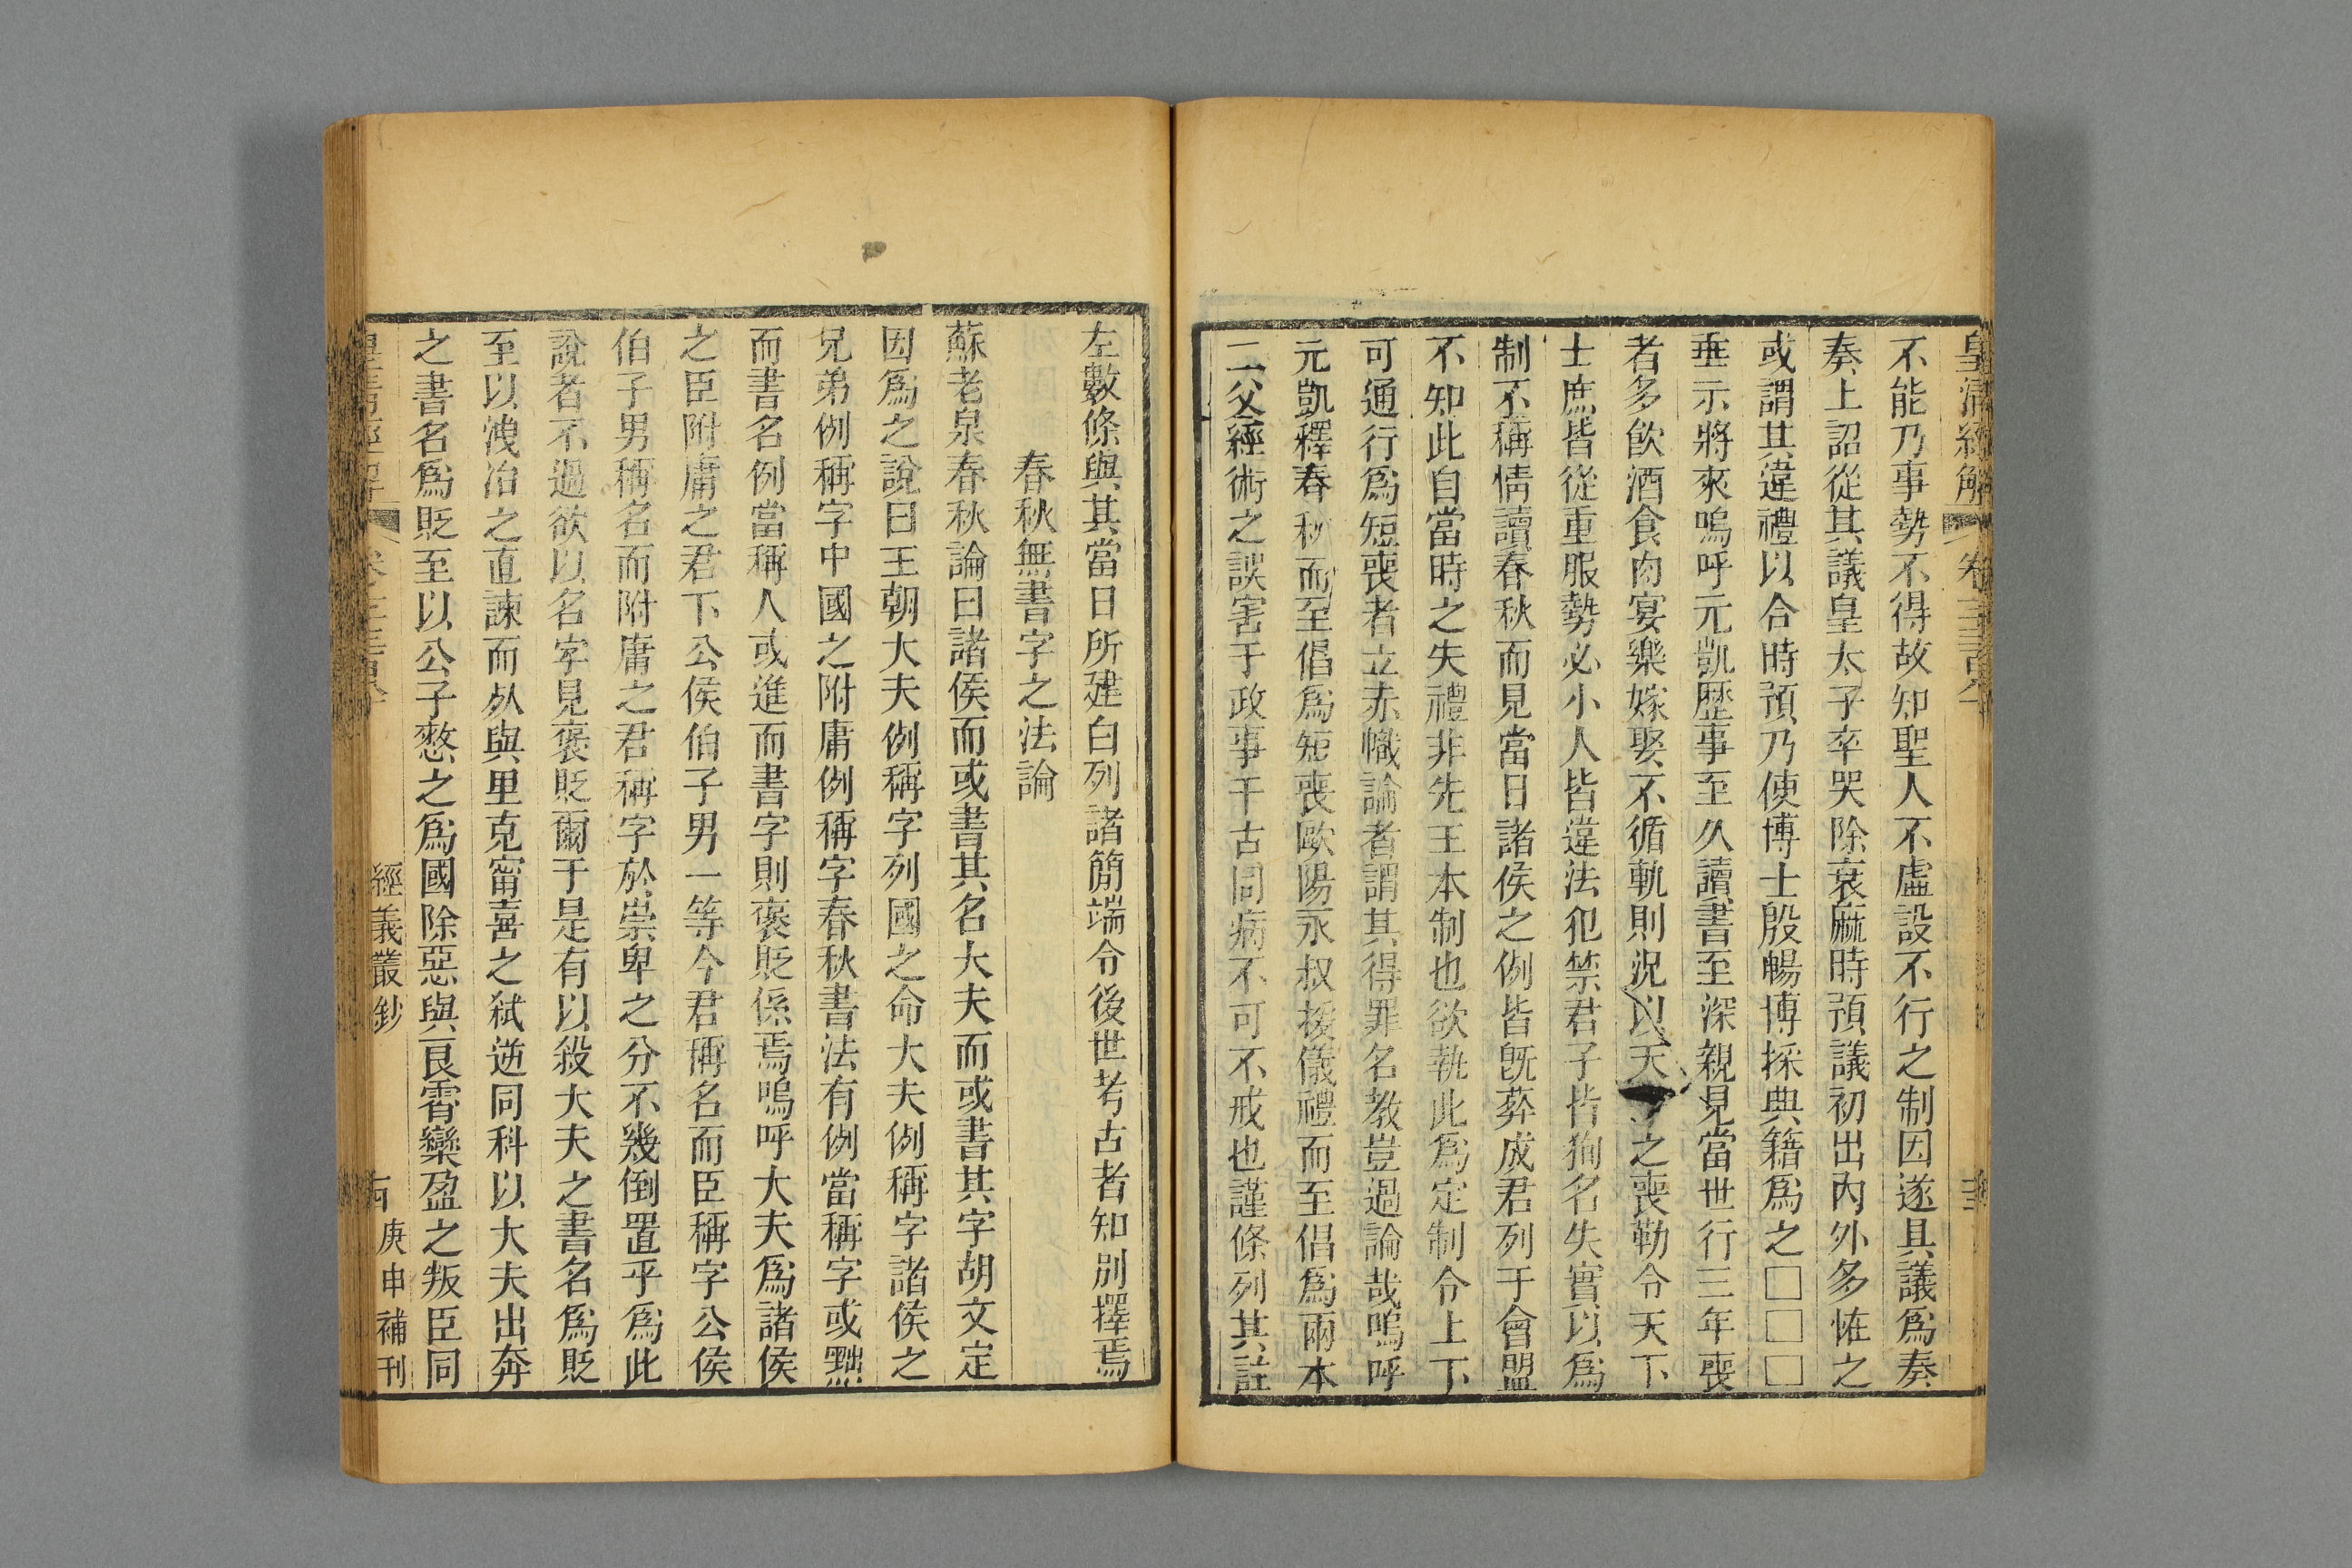 皇清經解 卷
不能乃事勢不得故知聖人不虛設不行之制因遂具議爲奏
奏上詔從其議皇太子卒哭除衰麻時預議初出內外多怪之
或謂其違禮以合時預乃使博士殷暢博採典籍爲之□□□
垂示將來嗚呼元凱歷事至久讀書至深親見當世行三年喪
者多飲酒食肉宴樂嫁娶不循軌則況以天之喪勒令天下
士庶皆從重服勢必小人皆違法犯禁君子皆狥名失實以爲
制不稱情讀春秋而見當日諸侯之例皆旣葬成君列于會盟
不知此自當時之失禮非先王本制也欲執此爲定制令上下
可通行爲短喪者立赤幟論者謂其得罪名教豈過論哉嗚呼
元凱釋春秋而至倡爲短喪歐陽永叔援儀禮而至倡爲兩本
二父經術之誤害于政事千古同病不可不戒也謹條列其註
左數條與其當日所建白列諸簡端令後世考古者知別擇焉
春秋無書字之法論
蘇老泉春秋論曰諸侯而或書其名大夫而或書其字胡文定
因爲之說曰王朝大夫例稱字列國之命大夫例稱字諸侯之
兄弟例稱字中國之附庸例稱字春秋書法有例當稱字或黜
而書名例當稱人或進而書字則褒貶係焉嗚呼大夫爲諸侯
之臣附庸之君下公侯伯子男一等今君稱名而臣稱字公侯
伯子男稱名而附庸之君稱字於崇卑之分不幾倒置乎爲此
說者不過欲以名字見褒貶爾于是有以殺大夫之書名爲貶
至以洩冶之直諫而死與里克甯喜之弑逆同科以大夫出奔
之書名爲貶至以公子憖之爲國除惡與良霄欒盈之叛臣同
皇清經解 卷 經義叢鈔 庚申補刊